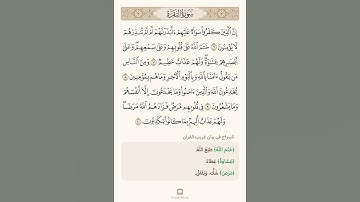 سورة البقرة
إِنَّ ٱلَّذِينَ كَفَرُوا۟ سَوَآءٌ عَلَيْهِمْ ءَأَنذَرْتَهُمْ أَمْ لَمْ تُنذِرْهُمْ
لَا يُؤْمِنُونَ ٦ خَتَمَ ٱللَّهُ عَلَىٰ قُلُوبِهِمْ وَعَلَىٰ سَمْعِهِمْ وَعَلَىٰٓ
أَبْصَٰرِهِمْ غِشَٰوَةٌ وَلَهُمْ عَذَابٌ عَظِيمٌ ٧ وَمِنَ ٱلنَّاسِ
مَن يَقُولُ ءَامَنَّا بِٱللَّهِ وَبِٱلْيَوْمِ ٱلْءَاخِرِ وَمَا هُم بِمُؤْمِنِينَ ٨
يُخَٰدِعُونَ ٱللَّهَ وَٱلَّذِينَ ءَامَنُوا۟ وَمَا يَخْدَعُونَ إِلَّآ أَنفُسَهُمْ
وَمَا يَشْعُرُونَ ٩ فِى قُلُوبِهِم مَّرَضٌ فَزَادَهُمُ ٱللَّهُ مَرَضًا
وَلَهُمْ عَذَابٌ أَلِيمٌۢ بِمَا كَانُوا۟ يَكْذِبُونَ ١٠
السراج في بيان غريب القرآن
﴿خَتَمَ اللَّهُ﴾ طَبَعَ اللَّهُ.
﴿غِشَاوَةٌ﴾ غِطَاءٌ.
﴿مَرَضٌ﴾ شَكٌّ، وَنِفَاقٌ.